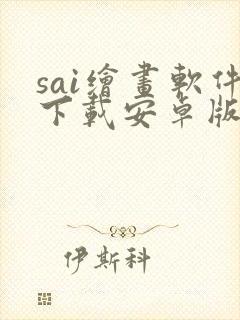 sai繪畫軟件
下載安卓版
伊斯科